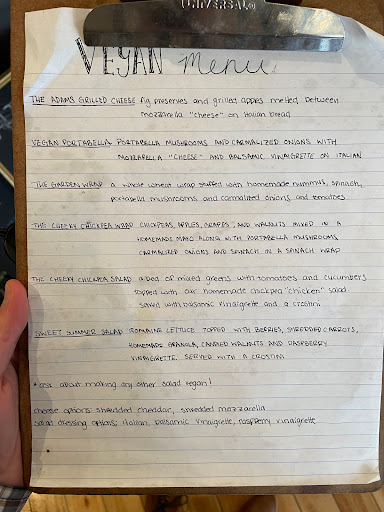 UNIVERSAL®
VEGAN menu
THE ADAMS GRILLED CHEESE fig preserves and grilled apples melted between
mozzarella "cheese" on italian bread
VEGAN PORTABELLA PORTABELLA MUSHROOMS AND CARMALIZED ONIONS WITH
MOZZARELLA "CHEESE" AND BALSAMIC VINAIGRETTE ON ITALIAN
THE GARDEN WRAP a whole wheat wrap stuffed with homemade hummus, spinach,
portabella mushrooms and carmalized onions and tomatoes
THE CHEEKY CHICKPEA WRAP CHICKPEAS, APPLES, GRAPES, AND WALNUTS MIXED IN A
HOMEMADE MAYO ALONG WITH PORTABELLA MUSHROOMS,
CARMALIZED ONIONS AND SPINACH IN A SPINACH WRAP
THE CHEEKY CHICKPEA SALAD a bed of mixed greens with tomatoes and cucumbers
topped with our homemade chickpea "chicken" salad.
served with balsamic vinaigrette and a crostini
SWEET SUMMER SALAD ROMAINE LETTUCE TOPPED WITH BERRIES, SHREDDED CARROTS,
HOMEMADE GRANOLA, CANDIED WALNUTS AND RASPBERRY
VINAIGRETTE. SERVED WITH A CROSTINI
*ask about making any other salad vegan!
cheese options: shredded cheddar, shredded mozzarella
salad dressing options: italian, balsamic vinaigrette, raspberry vinaigrette